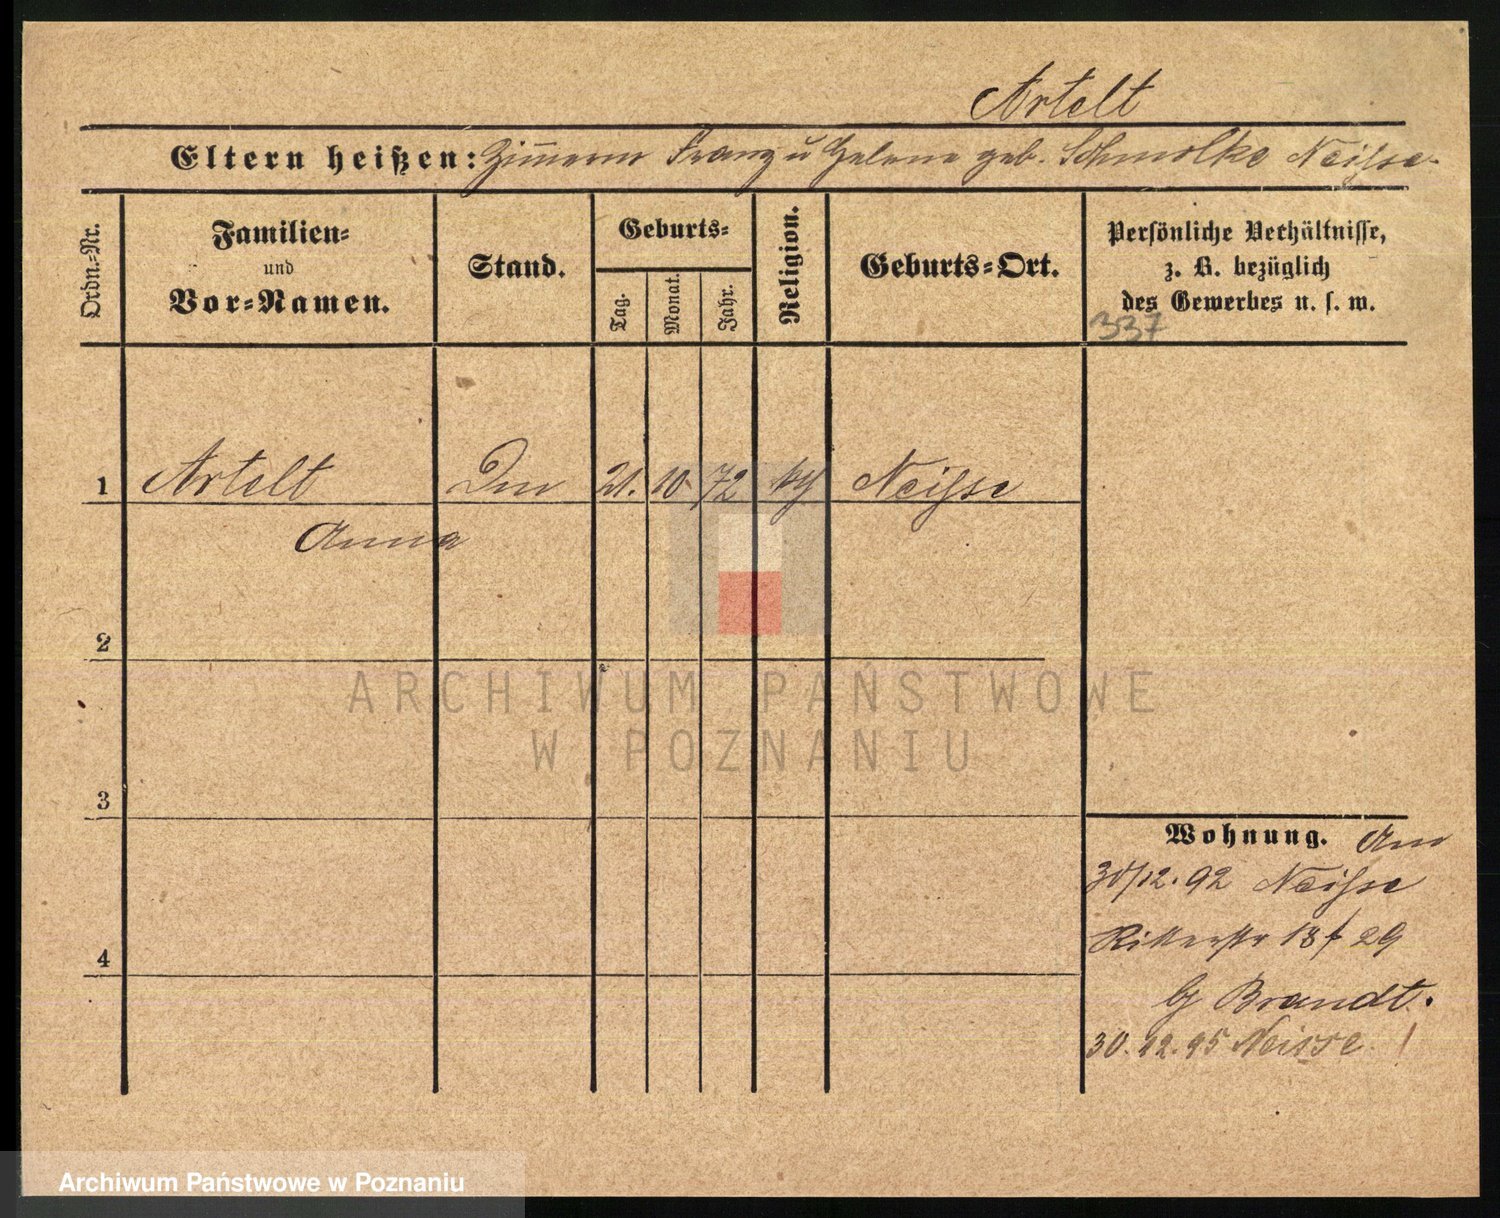 Artelt
Eltern heißen: Zimmerm Franz u Helene geb. Schmolke Neisse
Ordn.-Nr.
Familien-
und
Vor-Namen.
Stand.
Geburts-
Tag.
Monat.
Jahr.
Religion.
Geburts-Ort.
Persönliche Verhältnisse,
z. B. bezüglich
des Gewerbes u. s. w.
337
1 Artelt 21. 10. 72 kth Neisse
Anna
2
3
4
Wohnung.
30/12. 92 Neisse
Ritterstr 18 29
Brandt.
30. 12. 95 Neisse
ARCHIWUM PAŃSTWOWE
W POZNANIU
Archiwum Państwowe w Poznaniu